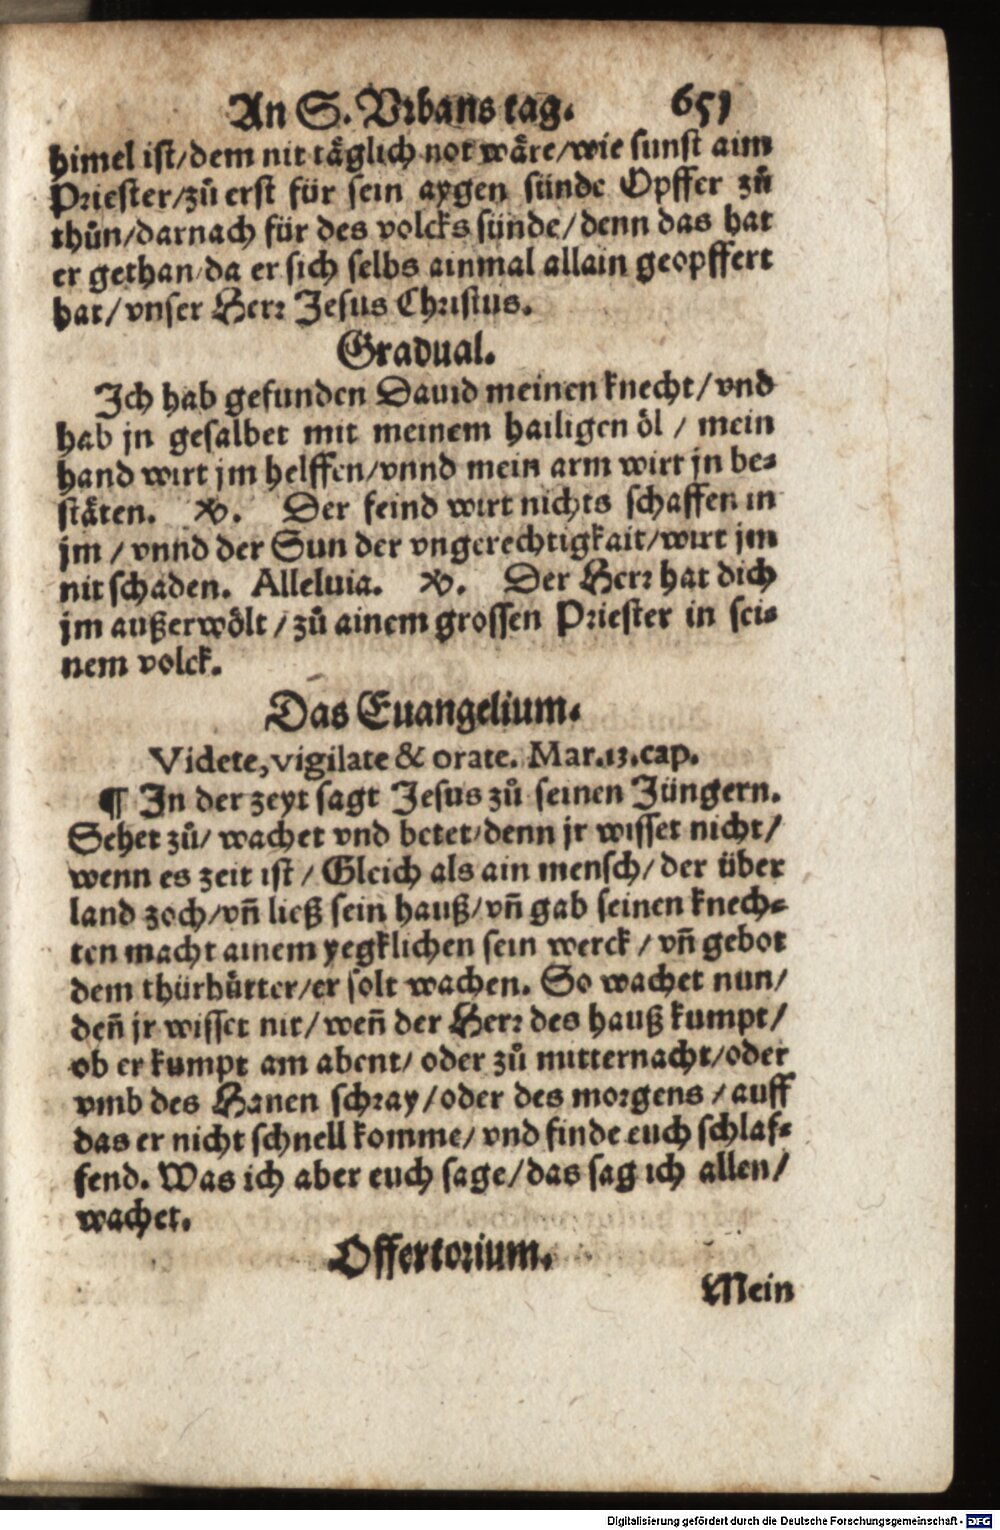 An S. Vrbans tag. 651
himel ist/dem nit täglich not wäre/wie sunst aim
Priester/zů erst für sein aygen sünde Opffer zů
thůn/darnach für des volcks sünde/denn das hat
er gethan/da er sich selbs ainmal allain geopffert
hat/vnser Herr Jesus Christus.
Gradual.
Ich hab gefunden Dauid meinen knecht/vnd
hab jn gesalbet mit meinem hailigen öl / mein
hand wirt jm helffen/vnnd mein arm wirt jn be-
stäten. ℣. Der feind wirt nichts schaffen in
jm / vnnd der Sun der vngerechtigkait/wirt jm
nit schaden. Alleluia. ℣. Der Herr hat dich
jm außerwölt / zů ainem grossen Priester in sei-
nem volck.
Das Euangelium.
Videte, vigilate & orate. Mar.13.cap.
¶ In der zeyt sagt Jesus zů seinen Jüngern.
Sehet zů/ wachet vnd betet/denn jr wisset nicht/
wenn es zeit ist / Gleich als ain mensch/ der über
land zoch/vñ ließ sein hauß/vñ gab seinen knech-
ten macht ainem yegklichen sein werck / vñ gebot
dem thürhůtter/er solt wachen. So wachet nun/
deñ jr wisset nit/weñ der Herr des hauß kumpt/
ob er kumpt am abent/ oder zů mitternacht/oder
vmb des Hanen schray/oder des morgens / auff
das er nicht schnell komme/ vnd finde euch schlaf-
fend. Was ich aber euch sage/das sag ich allen/
wachet.
Offertorium.
Mein
Digitalisierung gefördert durch die Deutsche Forschungsgemeinschaft - DFG